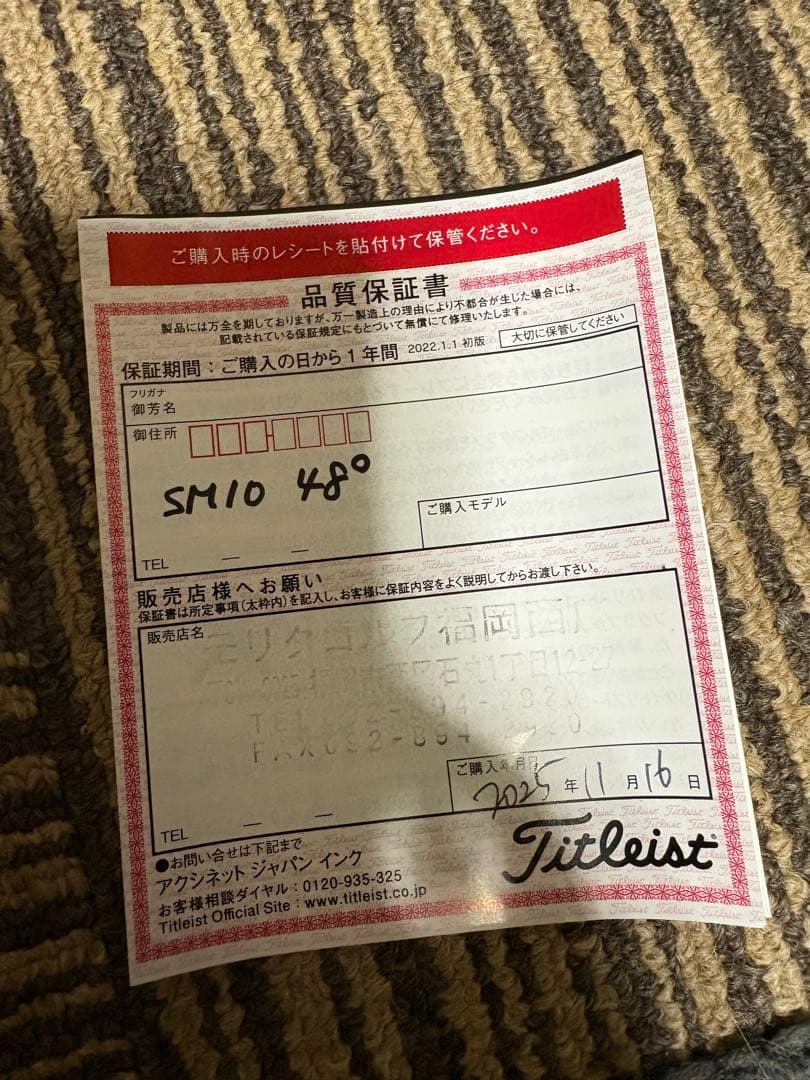 ご購入時のレシートを貼付けて保管ください。
品質保証書
製品には万全を期しておりますが、万一製造上の理由により不都合が生じた場合には、
記載されている保証規定にもとづいて無償にて修理いたします。
保証期間：ご購入の日から1年間 2022.1.1 初版 大切に保管してください
フリガナ
御芳名
御住所
SM10 48°
ご購入モデル
TEL — —
販売店様へお願い
保証書は所定事項(太枠内)を記入し、お客様に保証内容をよく説明してからお渡し下さい。
販売店名
ゴルフ福岡西
石丸1丁目12-27
894-2920
FAX092-894-2920
ご購入年月日
2025 年 11 月 16 日
TEL — —
Titleist
●お問い合せは下記まで
アクシネット ジャパン インク
お客様相談ダイヤル：0120-935-325
Titleist Official Site：www.titleist.co.jp